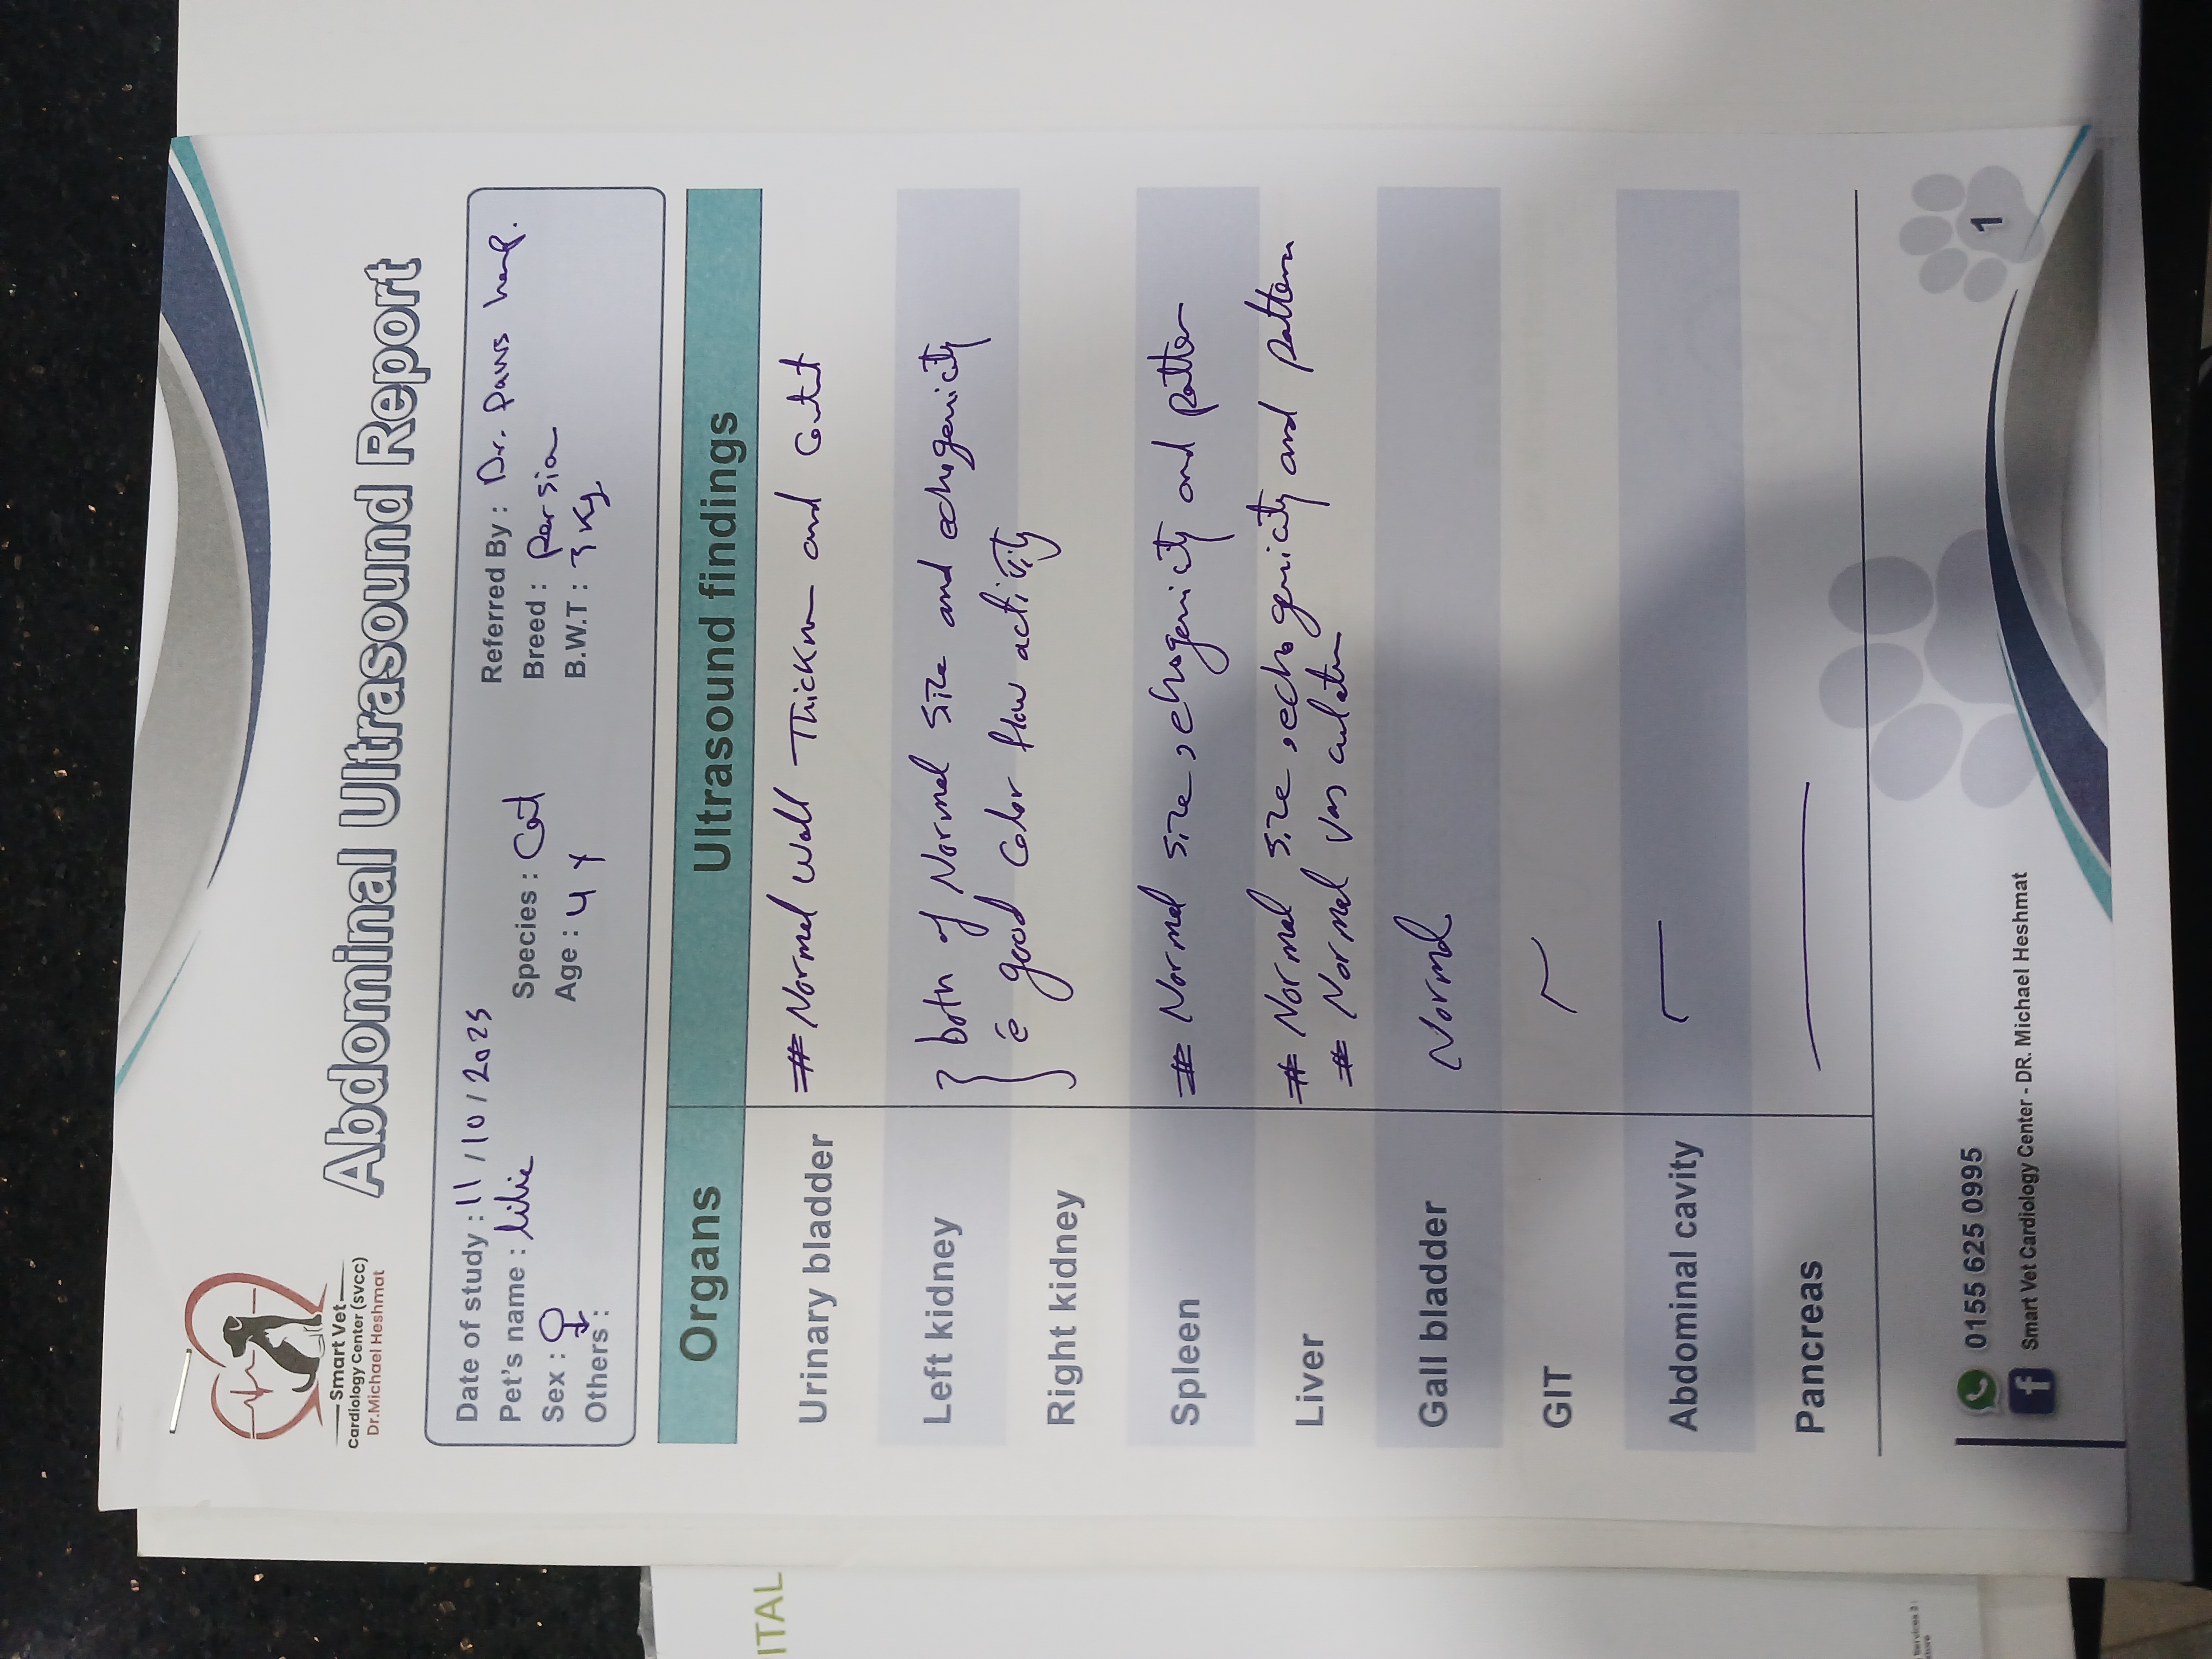 Smart Vet
Cardiology Center (svcc)
Dr.Michael Heshmat
Abdominal Ultrasound Report
Date of study : 11 / 10 / 2025
Referred By : Dr. Paws
Pet's name :
Species : Cat
Breed : Persian
Sex : ♀
Age : 4 Y
B.W.T : 3 Kg
Others :
Organs Ultrasound findings
Urinary bladder # Normal wall Thickn and Contnt
Left kidney } both of Normal size and echogenicity
Right kidney c̄ good Color flow activity
Spleen # Normal size, echogenicity and patter
Liver # Normal size, echogenicity and pattern
# Normal vasculatur
Gall bladder Normal
GIT
Abdominal cavity
Pancreas
0155 625 0995
Smart Vet Cardiology Center - DR. Michael Heshmat
1
ITAL